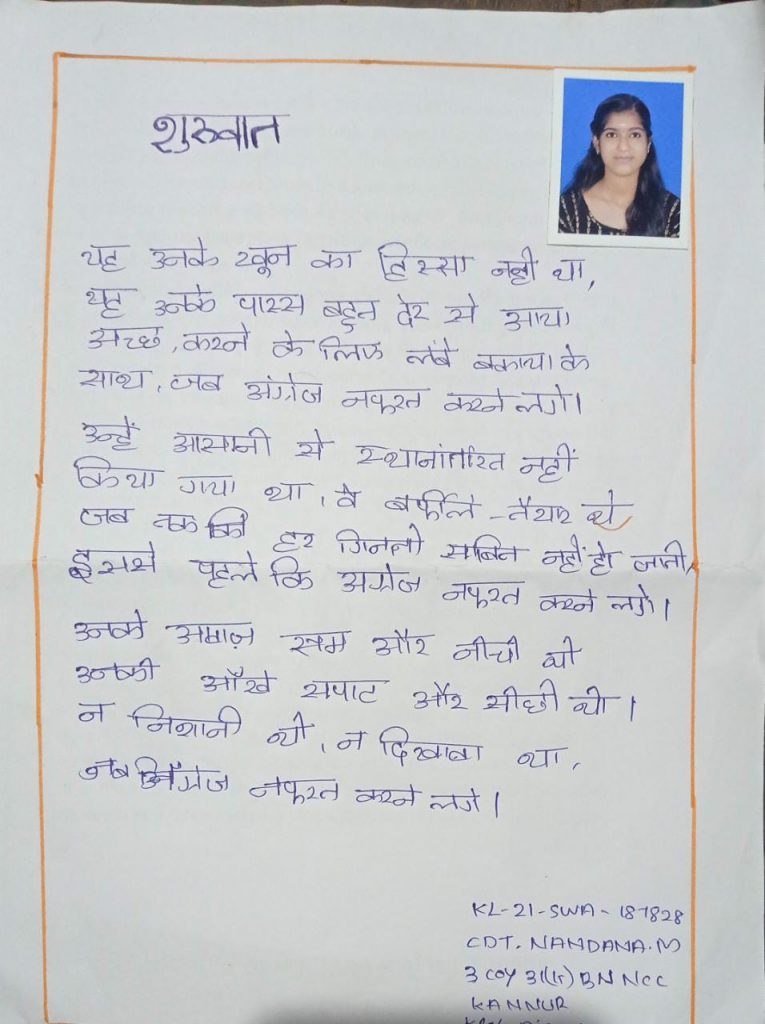 शुरुवात
यह उनके खून का हिस्सा नही था,
यह उनके पास्स बहुत देर से आया
अच्छ, करने के लिए लंबे बकाया के
साथ, जब अंग्रेज नफरत करने लगे।
उन्हें आसानी से स्थानांतरित नहीं
किया गया था, वे बर्फीले - तैयार थे
जब तक की हर गिनती साबित नहीं हो जाती,
इससे पहले कि अंग्रेज नफरत करने लगे।
उनके अमाज़ सम और नीची थी
उनकी आँखे सपाट और सीछी थी।
न निशानी थी, न दिखावा था,
जब अंग्रेज नफरत करने लगे।
KL-21-SWA-187828
CDT. NANDANA.M
3 COY 31(K) BN NCC
KANNUR